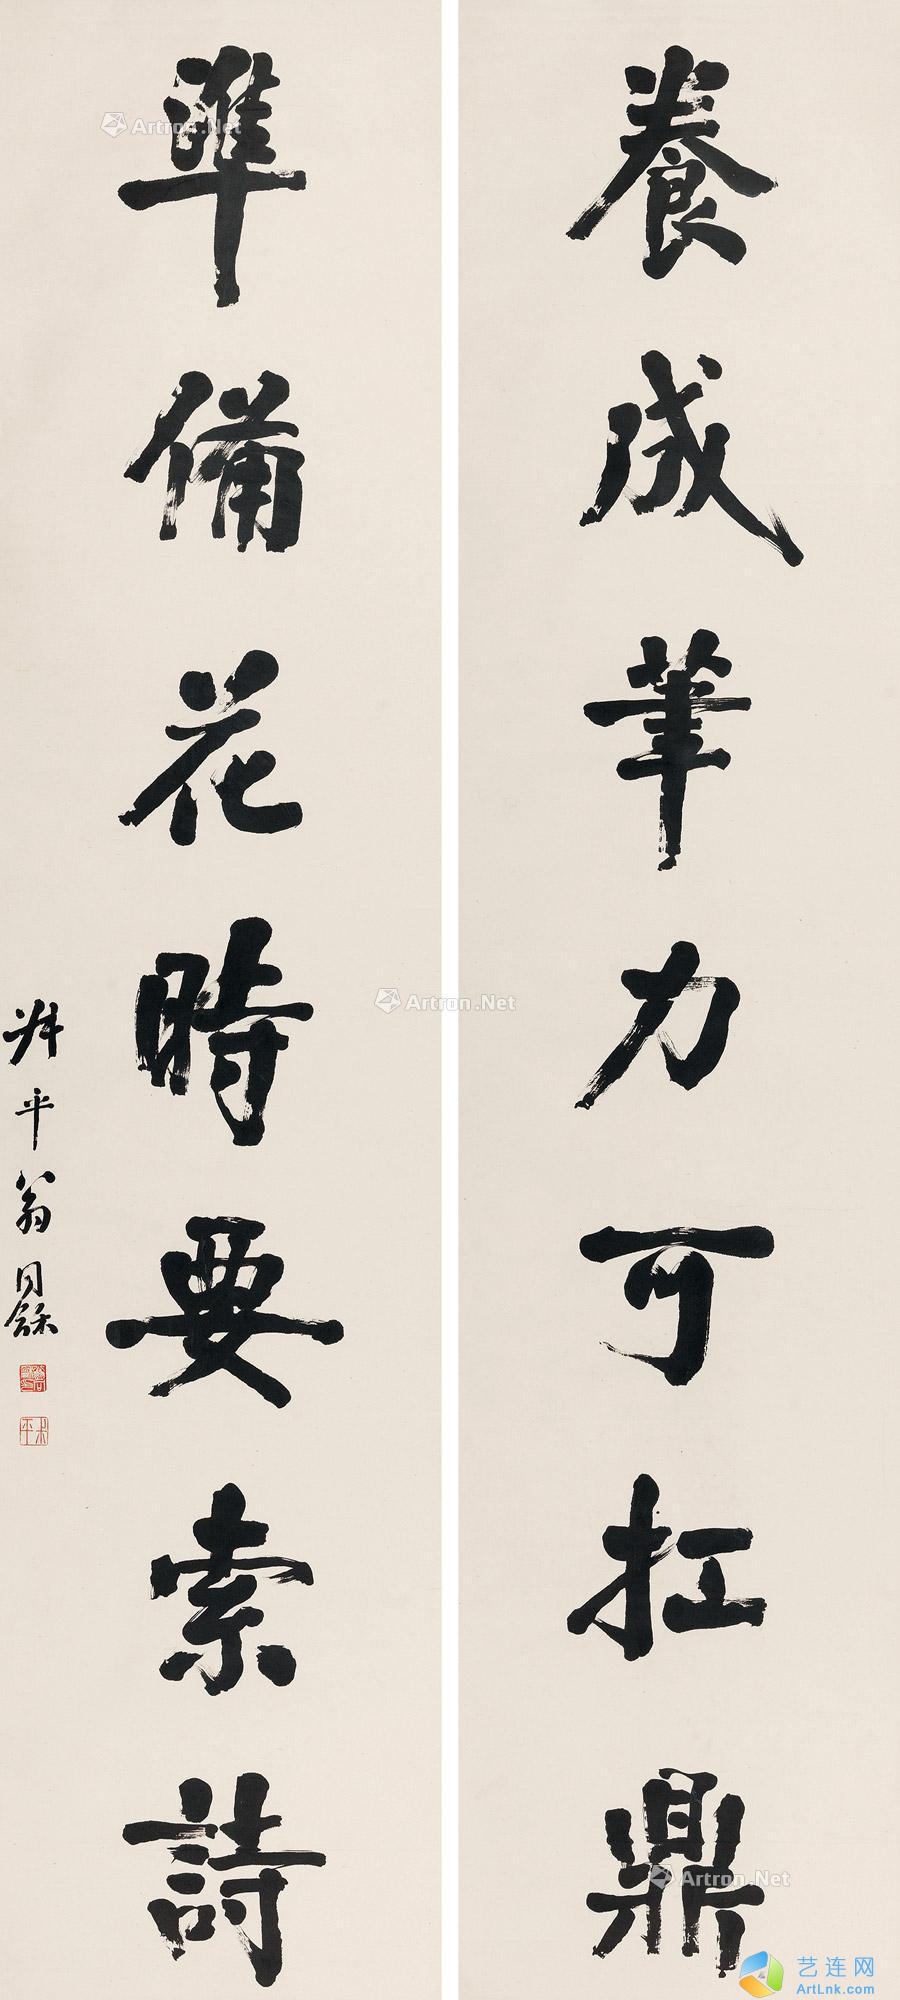 養成筆力可扛鼎
準備花時要索詩
尗平翁同龢
Artron.Net
Artron.Net
Artron.Net
艺连网
ArtLnk.com